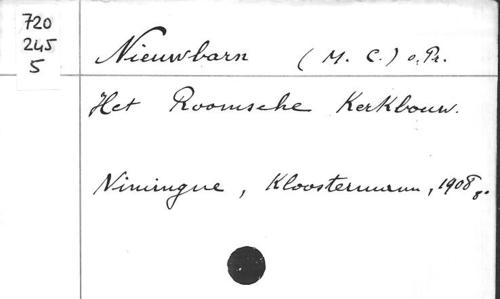 720
245
5
Nieuwbarn (M. C.) o. Pr.
Het Roomsche Kerkbouw.
Nimingue, Kloostermann, 1908, 8°.